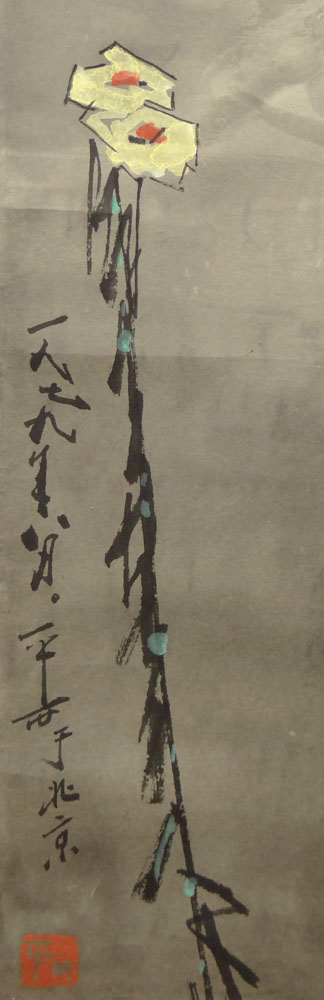 一九七九年八月。一平于北京